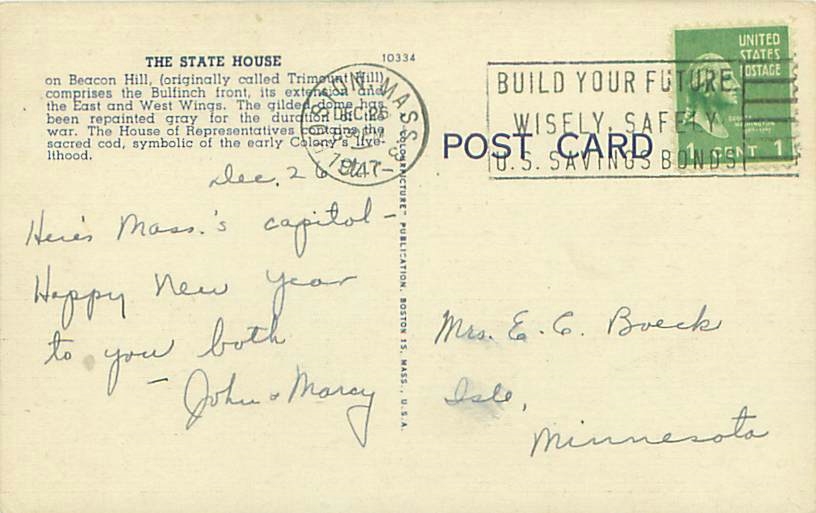 THE STATE HOUSE
on Beacon Hill, (originally called Trimount Hill)
comprises the Bulfinch front, its extension and
the East and West Wings. The gilded dome has
been repainted gray for the duration of the
war. The House of Representatives contains the
sacred cod, symbolic of the early Colony's live-
lihood.
10334
Dec. 26
Here's Mass.'s capitol-
Happy New Year
to you both
- John & Marcy
MASS.
DEC 26
1947
"COLORPICTURE" PUBLICATION, BOSTON 15, MASS., U.S.A.
BUILD YOUR FUTURE
WISELY, SAFELY
U.S. SAVINGS BONDS
UNITED
STATES
POSTAGE
1 CENT 1
POST CARD
Mrs. E. C. Boeck
Isle,
Minnesota